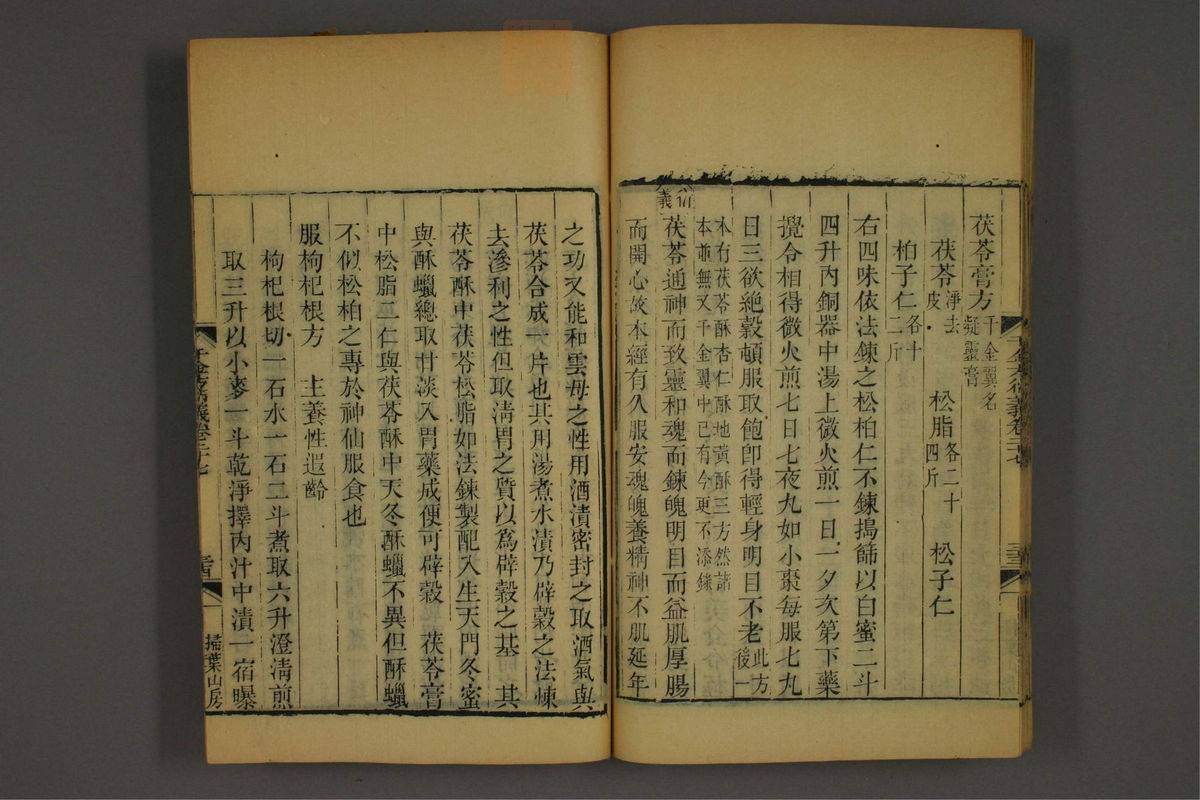 茯苓膏方千金翼名凝靈膏
茯苓淨去皮 松脂各二十四斤 松子仁
柏子仁各十二斤
右四味依法鍊之松柏仁不鍊搗篩以白蜜二斗
四升內銅器中湯上微火煎一日一夕次第下藥
攪令相得微火煎七日七夜丸如小棗每服七丸
日三欲絶穀頓服取飽卽得輕身明目不老此方後一
本有茯苓酥杏仁酥地黃酥三方然諸
本並無又千金翼中已有今更不添錄
衍義
茯苓通神而致靈和魂而鍊魄明目而益肌厚腸
而開心故本經有久服安魂魄養精神不肌延年
之功又能和雲母之性用酒漬密封之取酒氣與
茯苓合成一片也其用湯煮水漬乃辟穀之法煉
去滲利之性但取淸胃之質以爲辟穀之基 其
茯苓酥中茯苓松脂如法鍊製配入生天門冬蜜
與酥蠟總取甘淡入胃藥成便可辟穀 茯苓膏
中松脂二仁與茯苓酥中天冬酥蠟不異但酥蠟
不似松柏之專於神仙服食也
服枸杞根方 主養性遐齡
枸杞根切一石水一石二斗煮取六升澄淸煎
取三升以小麥一斗乾淨擇內汁中漬一宿曝
千金方衍義卷二十七
掃葉山房